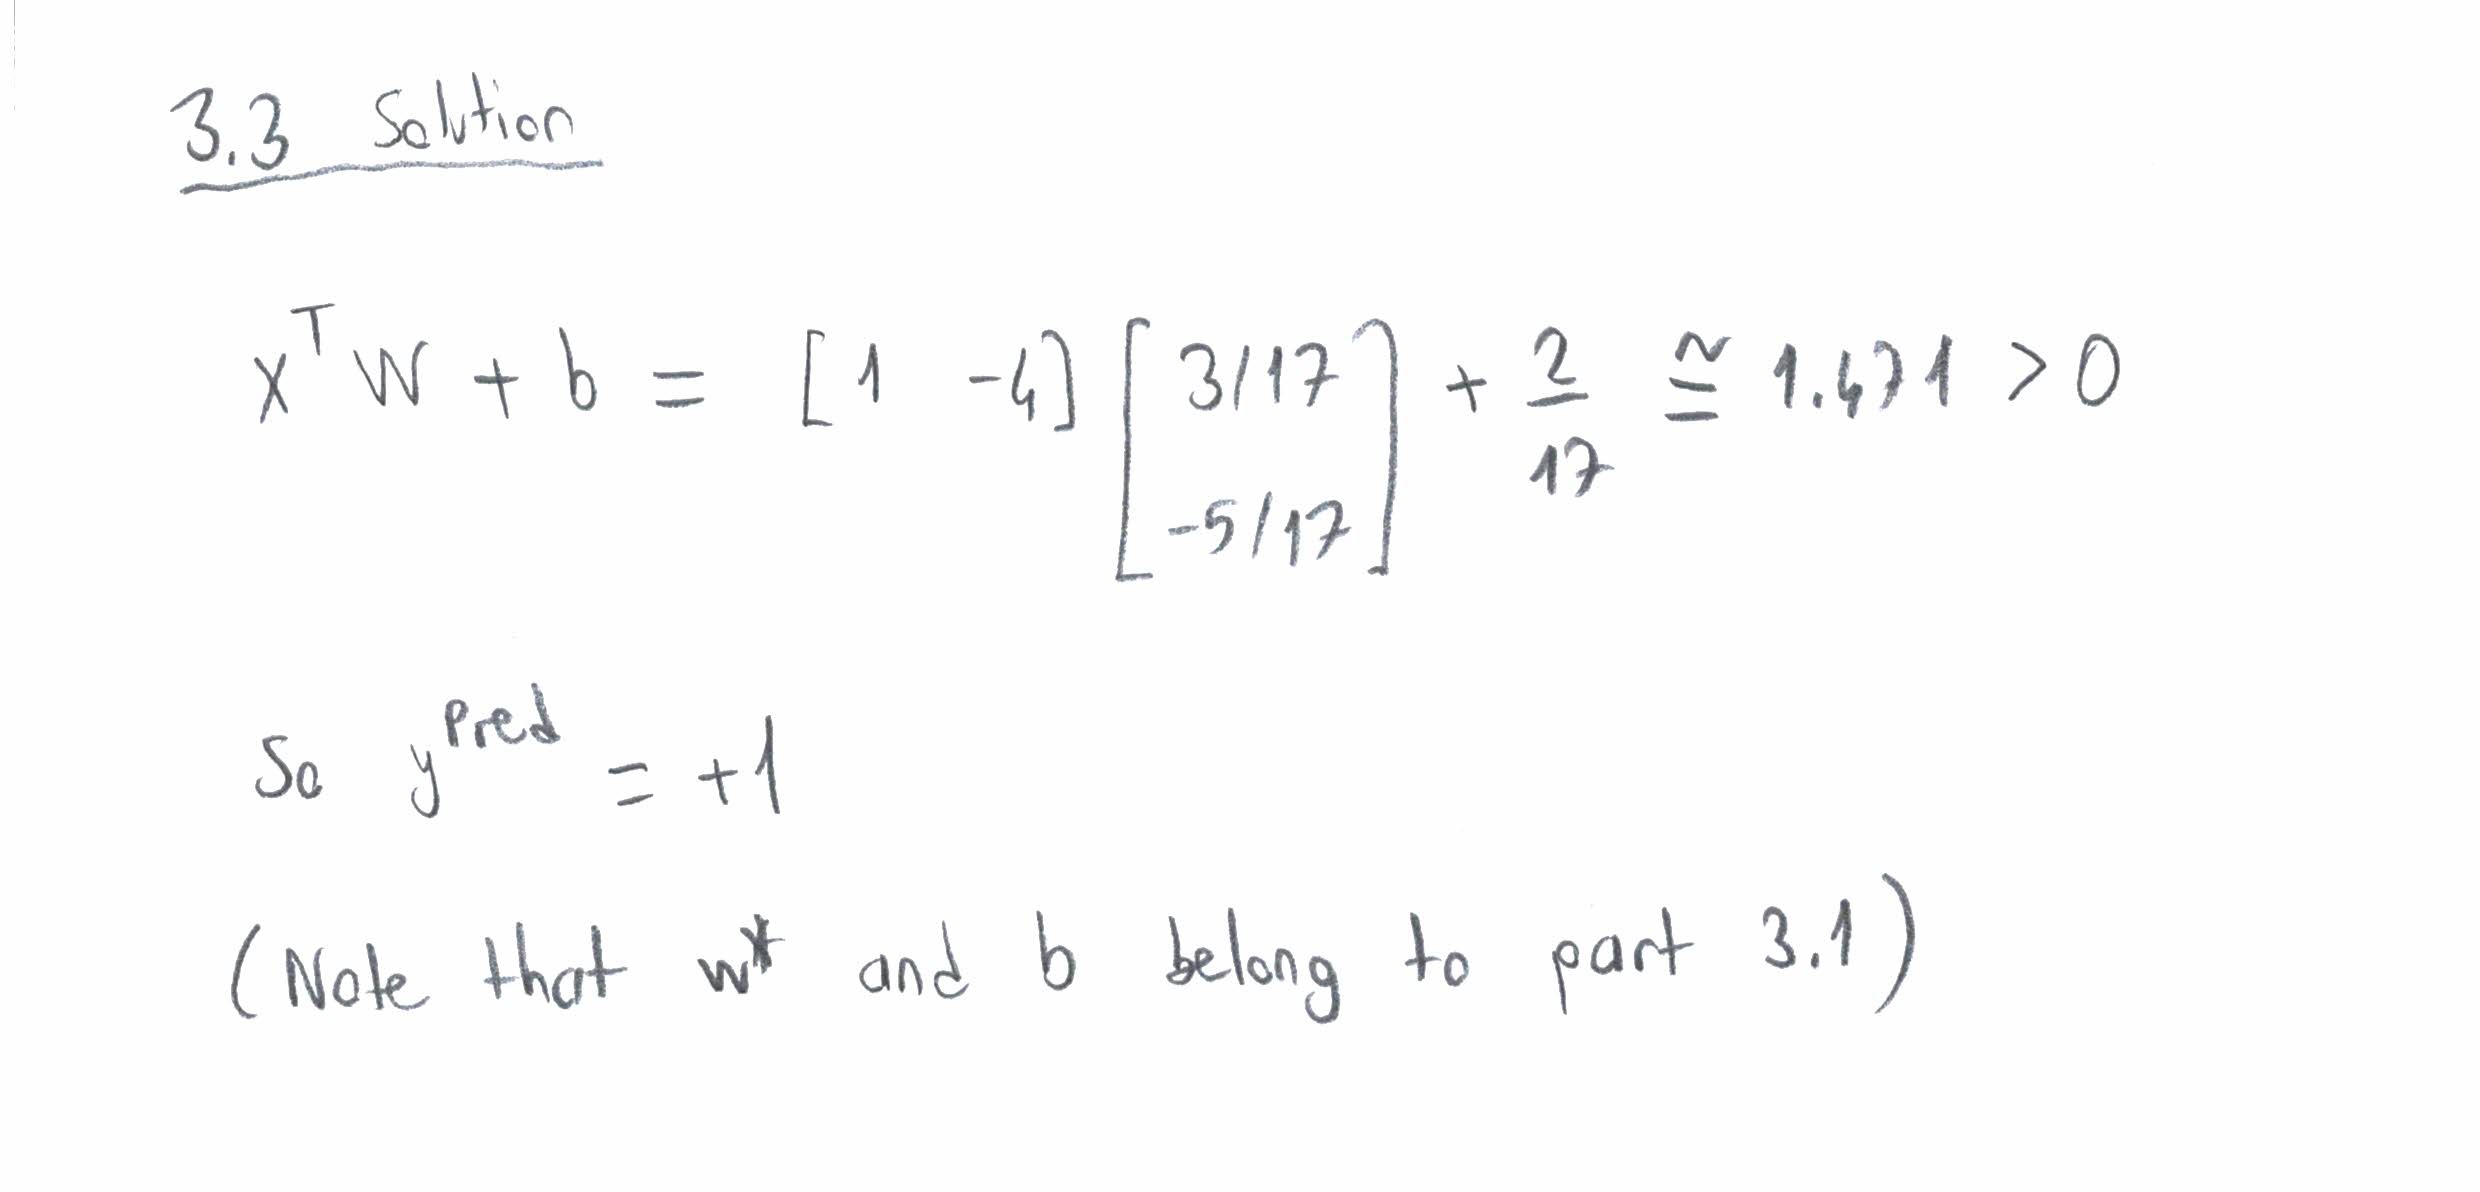 3.3 Solution
x^T W + b = [1 -4] [3/17 -5/17] + 2/17 ≅ 1.471 > 0
So y^pred = +1
(Note that w* and b belong to part 3.1)